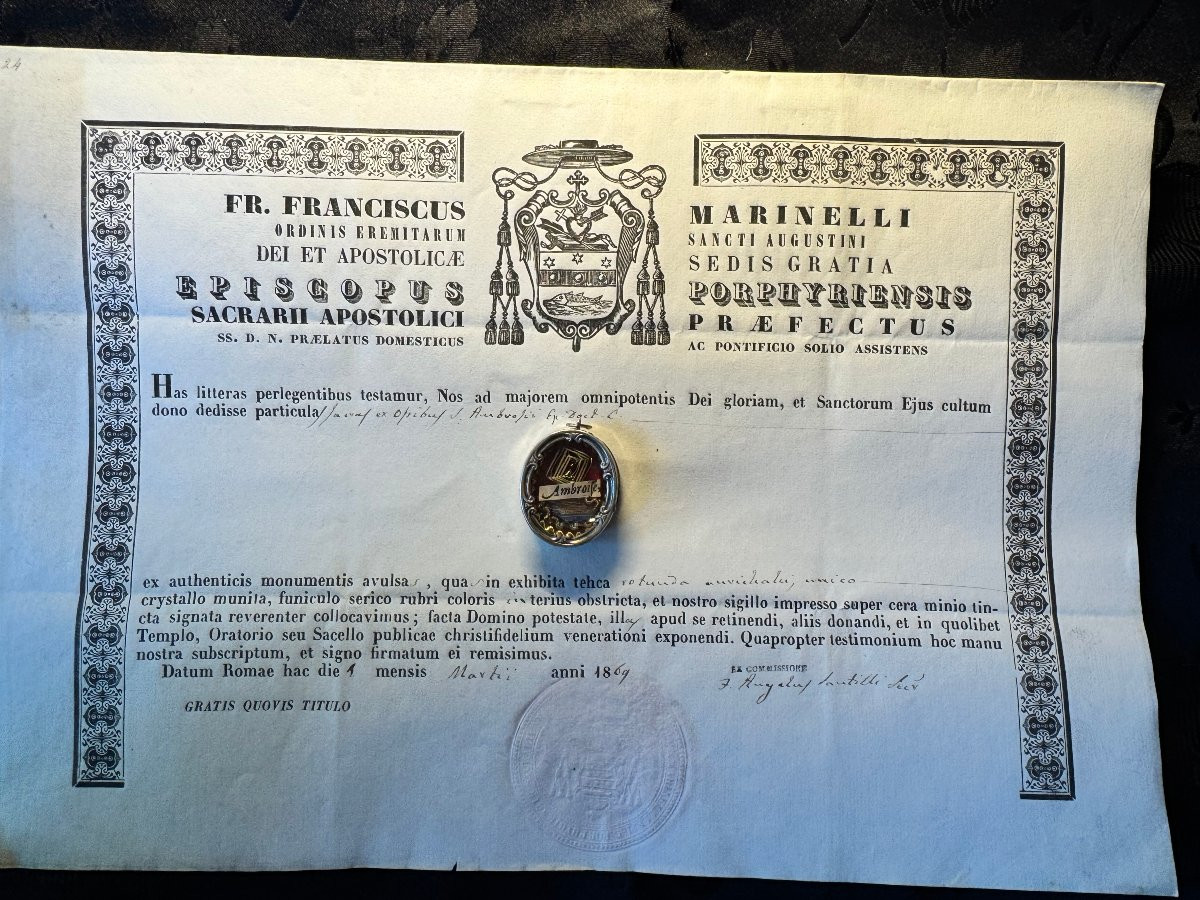 24
FR. FRANCISCUS MARINELLI
ORDINIS EREMITARUM SANCTI AUGUSTINI
DEI ET APOSTOLICÆ SEDIS GRATIA
EPISCOPUS PORPHYRIENSIS
SACRARII APOSTOLICI PRÆFECTUS
SS. D. N. PRÆLATUS DOMESTICUS AC PONTIFICIO SOLIO ASSISTENS
Has litteras perlegentibus testamur, Nos ad majorem omnipotentis Dei gloriam, et Sanctorum Ejus cultum
dono dedisse particulas sacras ex Ossibus S. Ambrosii Ep.
Ambroise
ex authenticis monumentis avulsas, quas in exhibita tehca rotunda aurichalci, unico
crystallo munita, funiculo serico rubri coloris terius obstricta, et nostro sigillo impresso super cera minio tin-
cta signata reverenter collocavimus; facta Domino potestate, illas apud se retinendi, aliis donandi, et in quolibet
Templo, Oratorio seu Sacello publicae christifidelium venerationi exponendi. Quapropter testimonium hoc manu
nostra subscriptum, et signo firmatum ei remisimus.
Datum Romae hac die mensis Martii anni 1869
EX COMMISSIONE
F. Angelus Santilli Secr
GRATIS QUOVIS TITULO